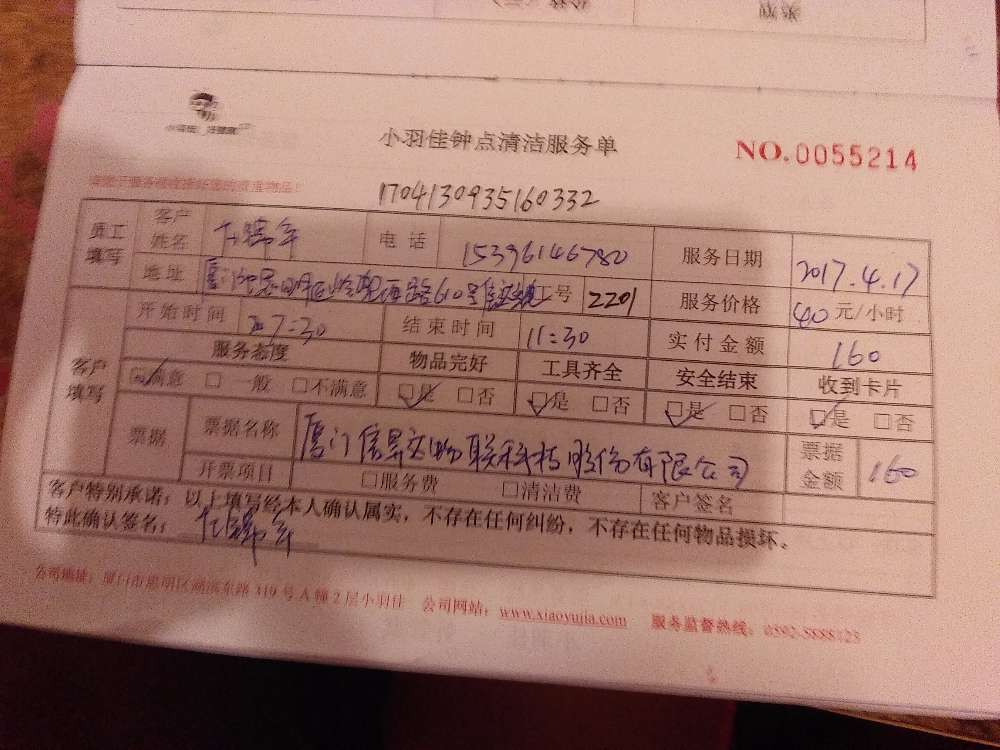 小羽佳钟点清洁服务单
NO.0055214
170413093516​0332
员工填写 客户姓名 电话 15396146780 服务日期 2017.4.17
地址 610号 号 2201 服务价格 40元/小时
开始时间 7:30 结束时间 11:30 实付金额 160
客户填写 服务态度 物品完好 工具齐全 安全结束 收到卡片
满意 一般 不满意 是 否 是 否 是 否 是 否
票据 票据名称 厦门信昇达物联科技股份有限公司 票据金额 160
开票项目 服务费 清洁费 客户签名
客户特别承诺:以上填写经本人确认属实,不存在任何纠纷,不存在任何物品损坏。
特此确认签名:
公司地址:厦门市思明区湖滨东路319号A幢2层小羽佳 公司网站:www.xiaoyujia.com 服务监督热线:0592-5888123